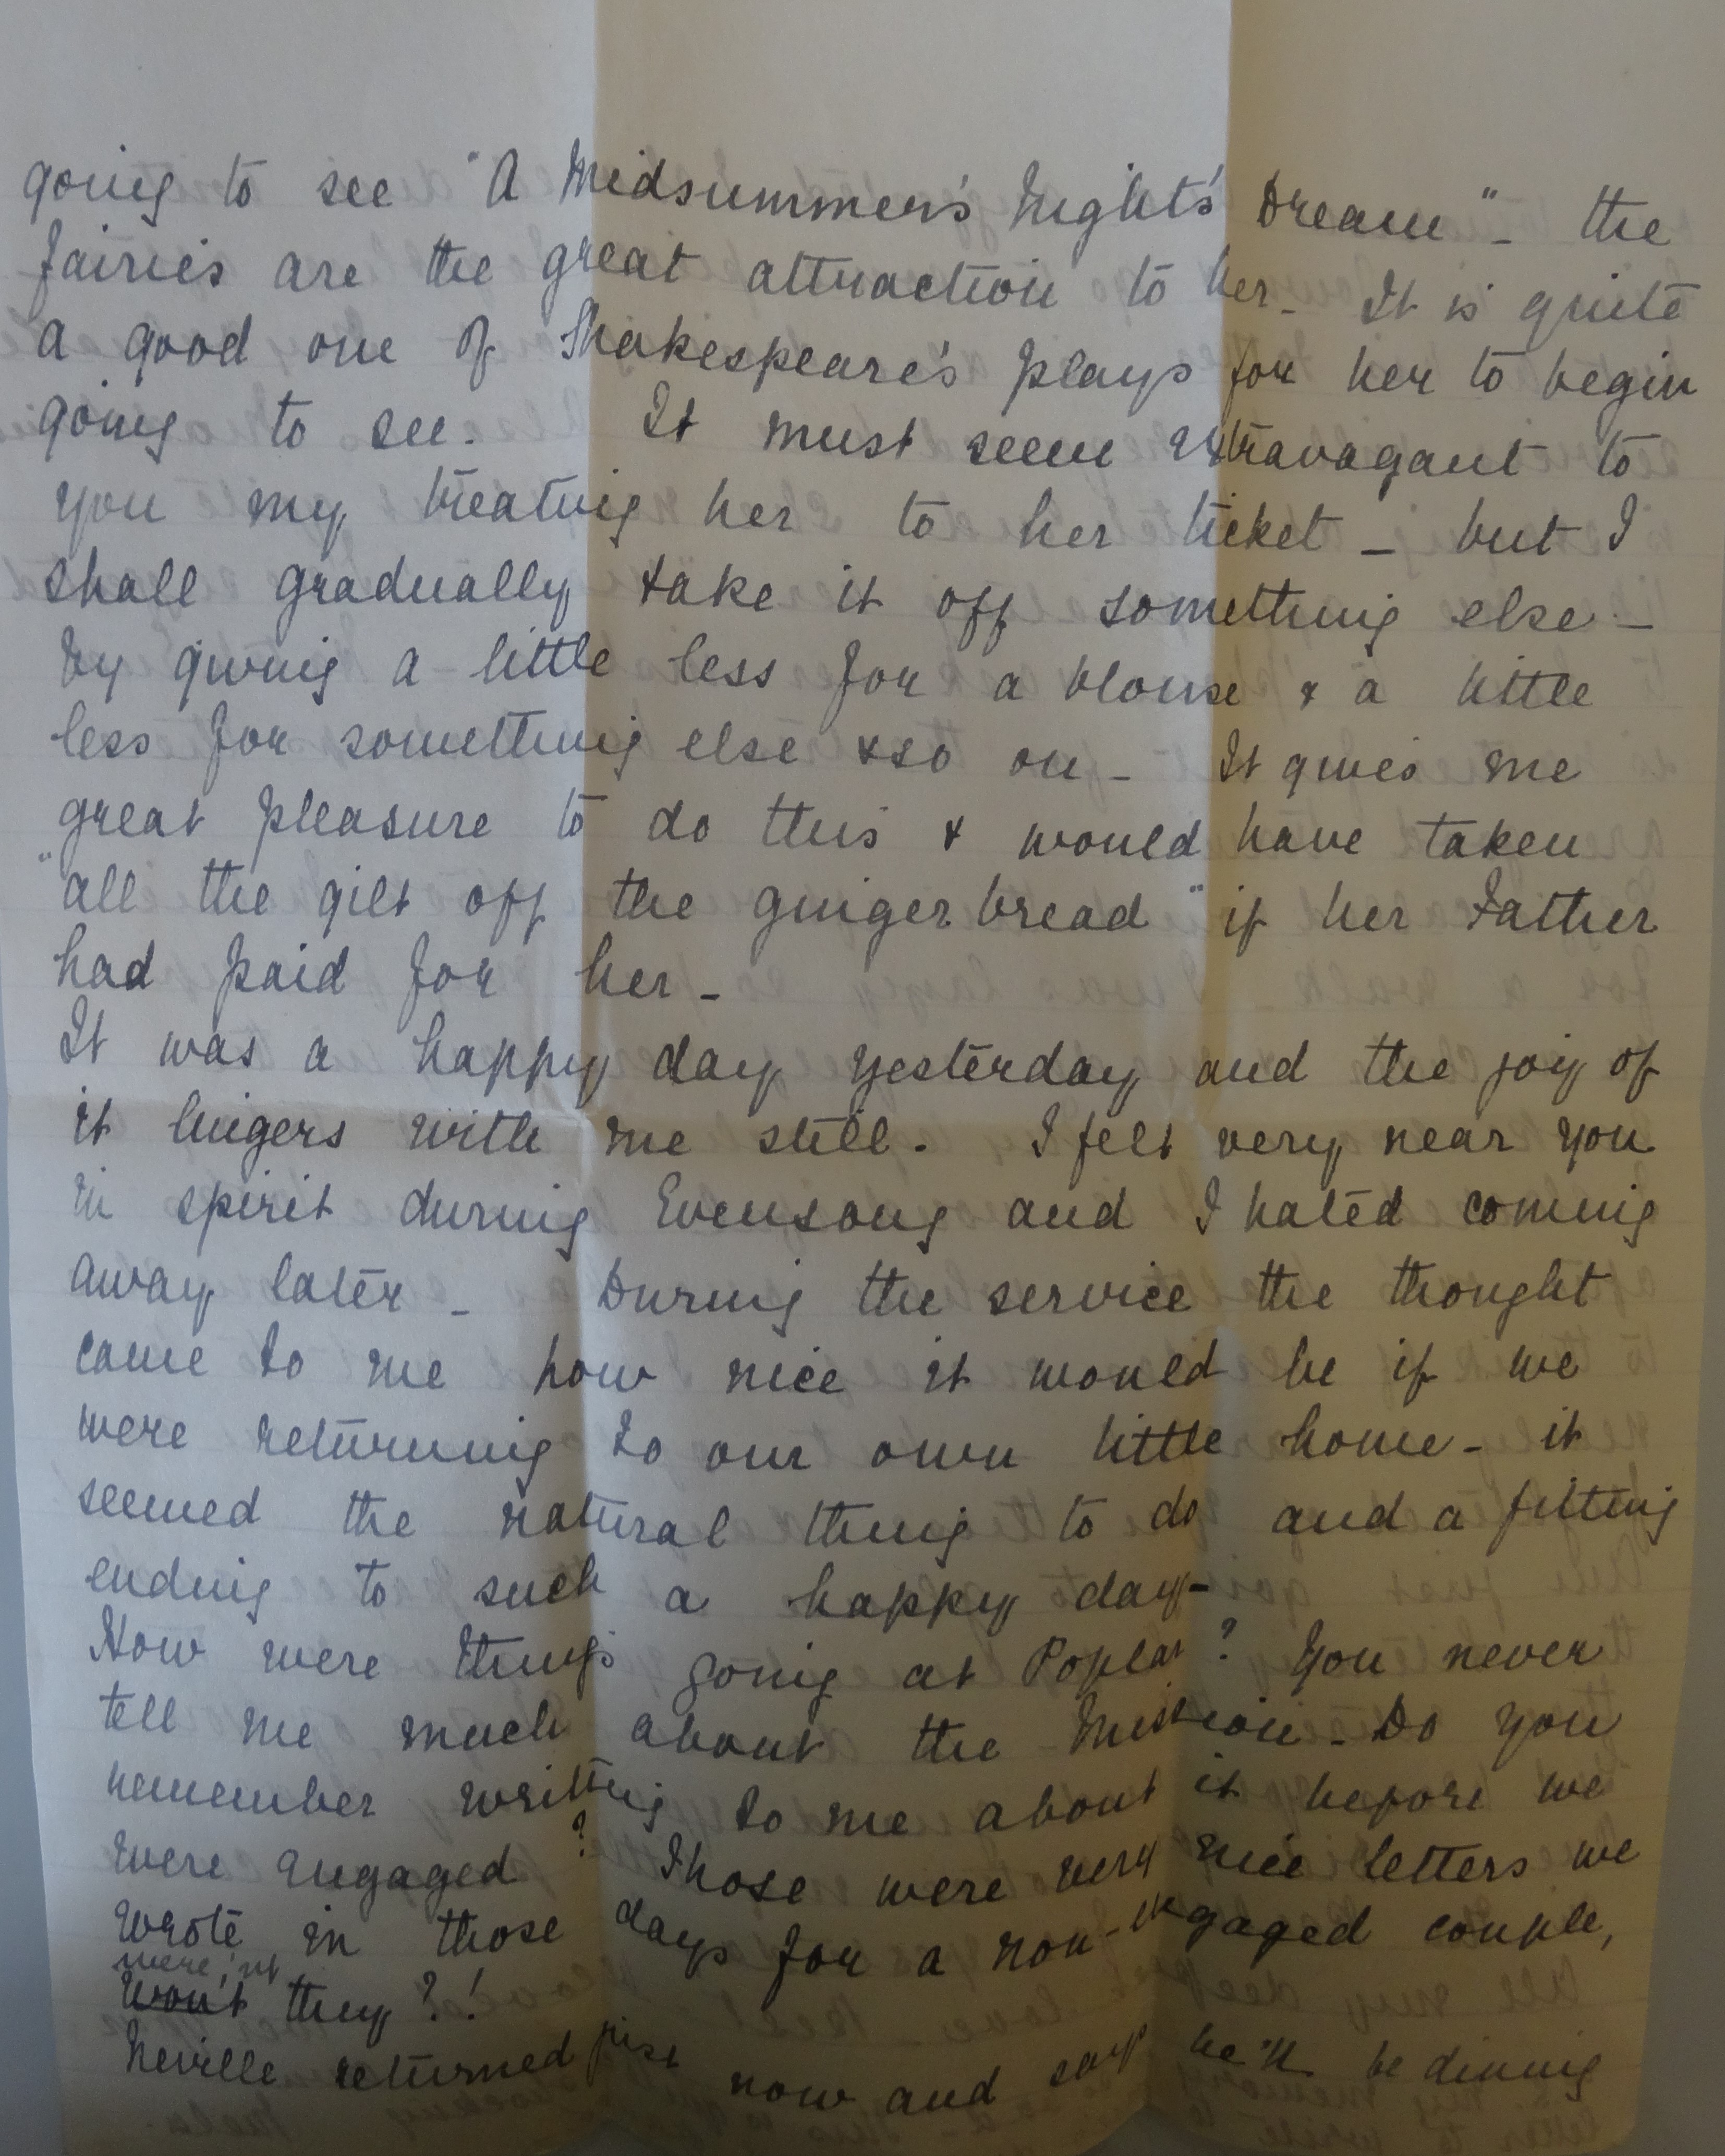 going to see "A Midsummer's Night's Dream" - the
fairies are the great attraction to her - It is quite
a good one of Shakespeare's plays for her to begin
going to see. It must seem extravagant to
you my treating her to her ticket - but I
shall gradually take it off something else -
by giving a little less for a blouse & a little
less for something else & so on - It gives me
great pleasure to do this & would have taken
"all the gilt off the gingerbread" if her Father
had paid for her -
It was a happy day yesterday and the joy of
it lingers with me still. I felt very near you
in spirit during Evensong and I hated coming
away later - During the service the thought
came to me how nice it would be if we
were returning to our own little home - it
seemed the natural thing to do and a fitting
ending to such a happy day -
How were things going at Poplar? You never
tell me much about the Mission - Do you
remember writting to me about it before we
were engaged? Those were very nice letters we
wrote in those days for a non-engaged couple,
were'nt
won't they?!
Neville returned just now and says he'll be dining